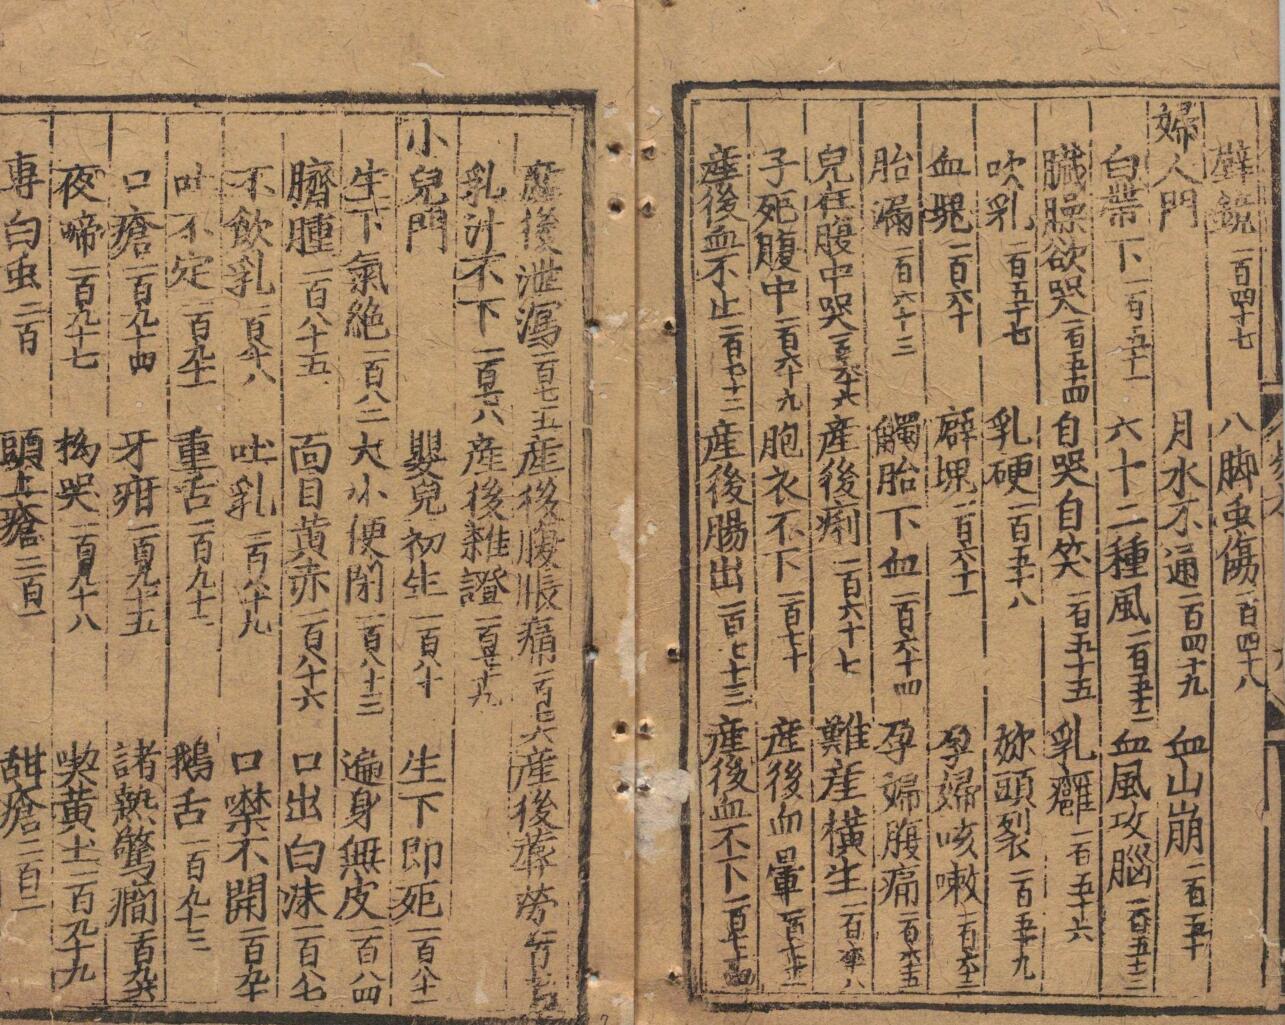 壁鏡一百四十七 八脚虫傷一百四十八
婦人門 月水不通一百四十九 血山崩一百五十
白帶下一百五十一 六十二種風一百五十二 血風攻腦一百五十三
臟臊欲哭一百五十四 自哭自笑一百五十五 乳癰一百五十六
吹乳一百五十七 乳硬一百五十八 妳頭裂一百五十九
血䰟一百六十 癖塊一百六十一 孕婦咳嗽一百六十二
胎漏一百六十三 觸胎下血一百六十四 孕婦腹痛一百六十五
兒在腹中哭一百六十六 産後痢一百六十七 難産橫生一百六十八
子死腹中一百六十九 胞衣不下一百七十 産後血暈一百七十一
産後血不止一百七十二 産後腸出一百七十三 産後血不下一百七十四
産後泄瀉一百七五 産後腹脹痛一百七六 産後蓐勞一百七七
乳汁不下一百七八 産後雜證一百七十九
小兒門 嬰兒初生一百八十 生下即死一百八十一
生下氣絶一百八二 大小便閉一百八十三 遍身無皮一百八四
臍腫一百八十五 面目黄赤一百八十六 口出白沫一百八七
不飲乳一百八十八 吐乳一百八十九 口噤不開一百九十
吐不定一百九十一 重舌一百九十二 鵝舌一百九十三
口瘡一百九十四 牙疳一百九十五 諸熱驚癎一百九六
夜啼一百九十七 拗哭一百九十八 喫黄土一百九十九
專白虫二百 頭上瘡二百一 甜瘡二百二